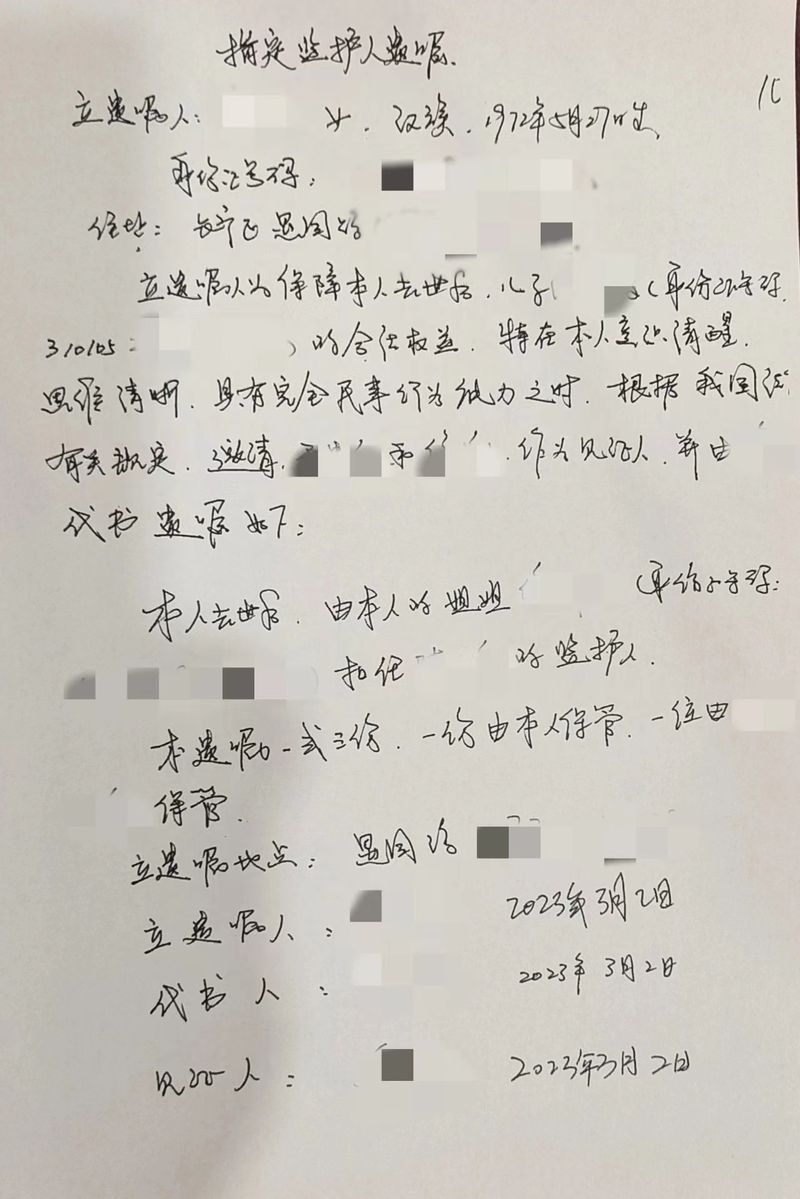 指定监护人遗嘱.
立遗嘱人: 女. 汉族. 1972年5月27日生,
身份证号码:
住址: 长宁区愚园路
立遗嘱人为保障本人去世后. 儿子 (身份证号码.
310105 ) 的合法权益. 特在本人意识清醒.
思维清晰. 具有完全民事行为能力之时. 根据我国法律
有关规定. 邀请. 和 作为见证人. 并由
代书遗嘱如下:
本人去世后. 由本人的姐姐 (身份证号码:
担任 的监护人.
本遗嘱一式三份. 一份由本人保管. 一位由
保管.
立遗嘱地点: 愚园路
立遗嘱人: 2023年3月2日
代书人: 2023年3月2日
见证人: 2023年3月2日